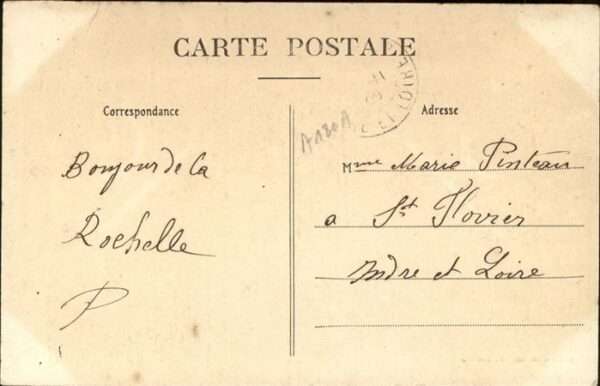 CARTE POSTALE
Correspondance
Bonjour de la
Rochelle
P
A180A
Adresse
Mme Marie Pinteau
a St Flovier
Indre et Loire